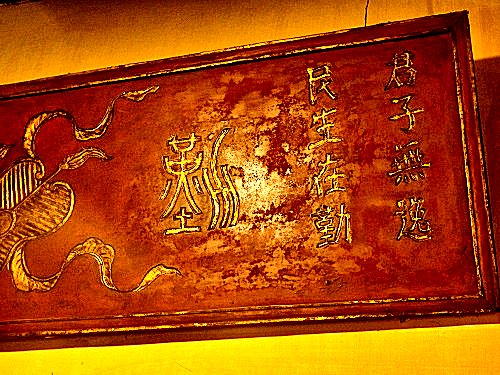 君子無逸
民生在勤
勤